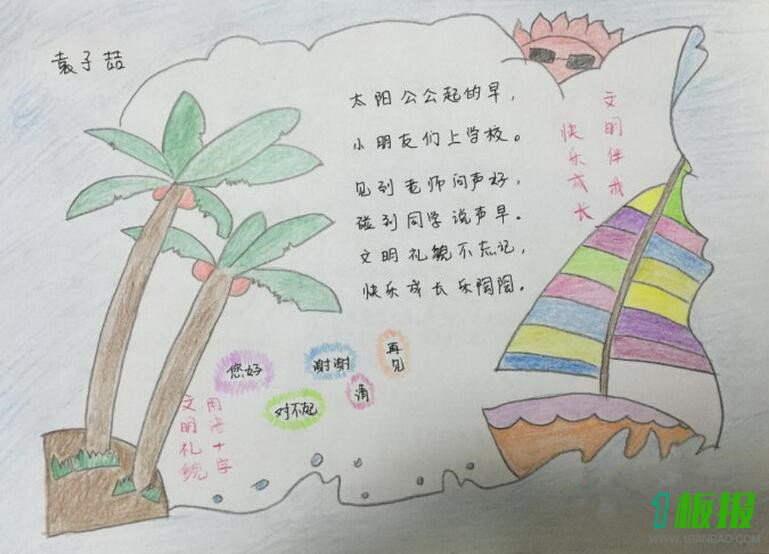 袁子喆
太阳公公起的早，
小朋友们上学校。
见到老师问声好，
碰到同学说声早。
文明礼貌不忘记，
快乐成长乐陶陶。
文明伴我
快乐成长
您好
谢谢
再见
对不起
请
文明礼貌
用语十字
1板报
WWW.1BANBAO.COM